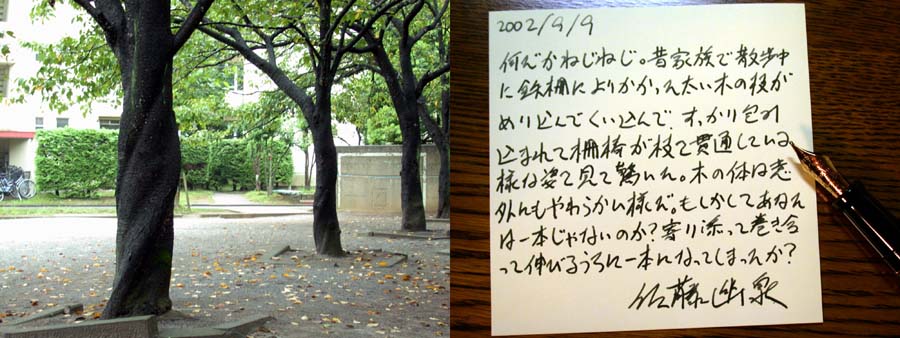 2002/9/9
何だかねじねじ。昔家族で散歩中
に鉄柵によりかかった太い木の枝が
めり込んでくい込んで すっかり包み
込まれて柵棒が枝で貫通している
様な姿で見て驚いた。木の体は意
外にもやわらかい様だ。もしかしてあなた
は一本じゃないのか?寄り添って巻き合
って伸びるうちに一本になってしまったか?
佐藤